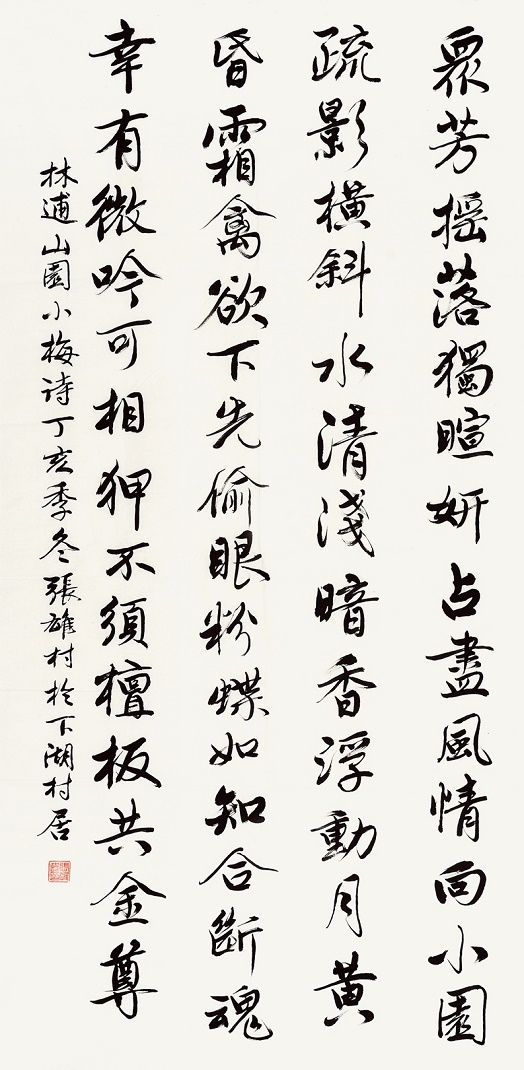 眾芳摇落獨暄妍占盡風情向小園
疏影橫斜水清淺暗香浮動月黃
昏霜禽欲下先偷眼粉蝶如知合斷魂
幸有微吟可相狎不須檀板共金尊
林逋山園小梅诗丁亥季冬張雄村於下湖村居